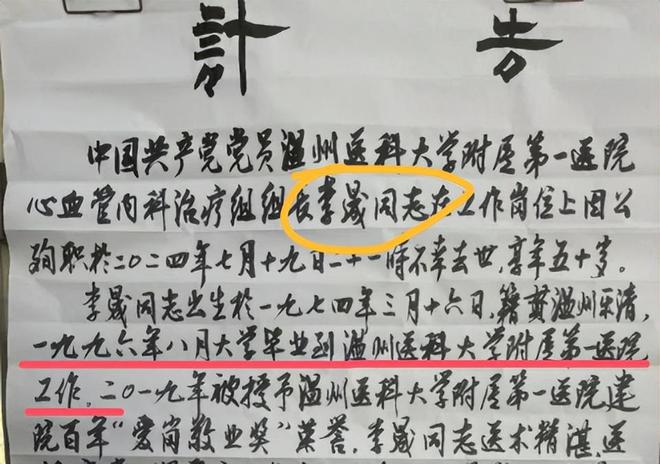 訃 告
中国共产党党员温州医科大学附属第一医院
心血管内科治疗组组长李晟同志在工作岗位上因公
殉职於二〇二四年七月十九日二十一时不幸去世,享年五十岁。
李晟同志出生於一九七四年三月十六日,籍贯温州乐清,
一九九六年八月大学毕业到温州医科大学附属第一医院
工作。二〇一九年被授予温州医科大学附属第一医院建
院百年“爱岗敬业奖”荣誉.李晟同志医术精湛,医